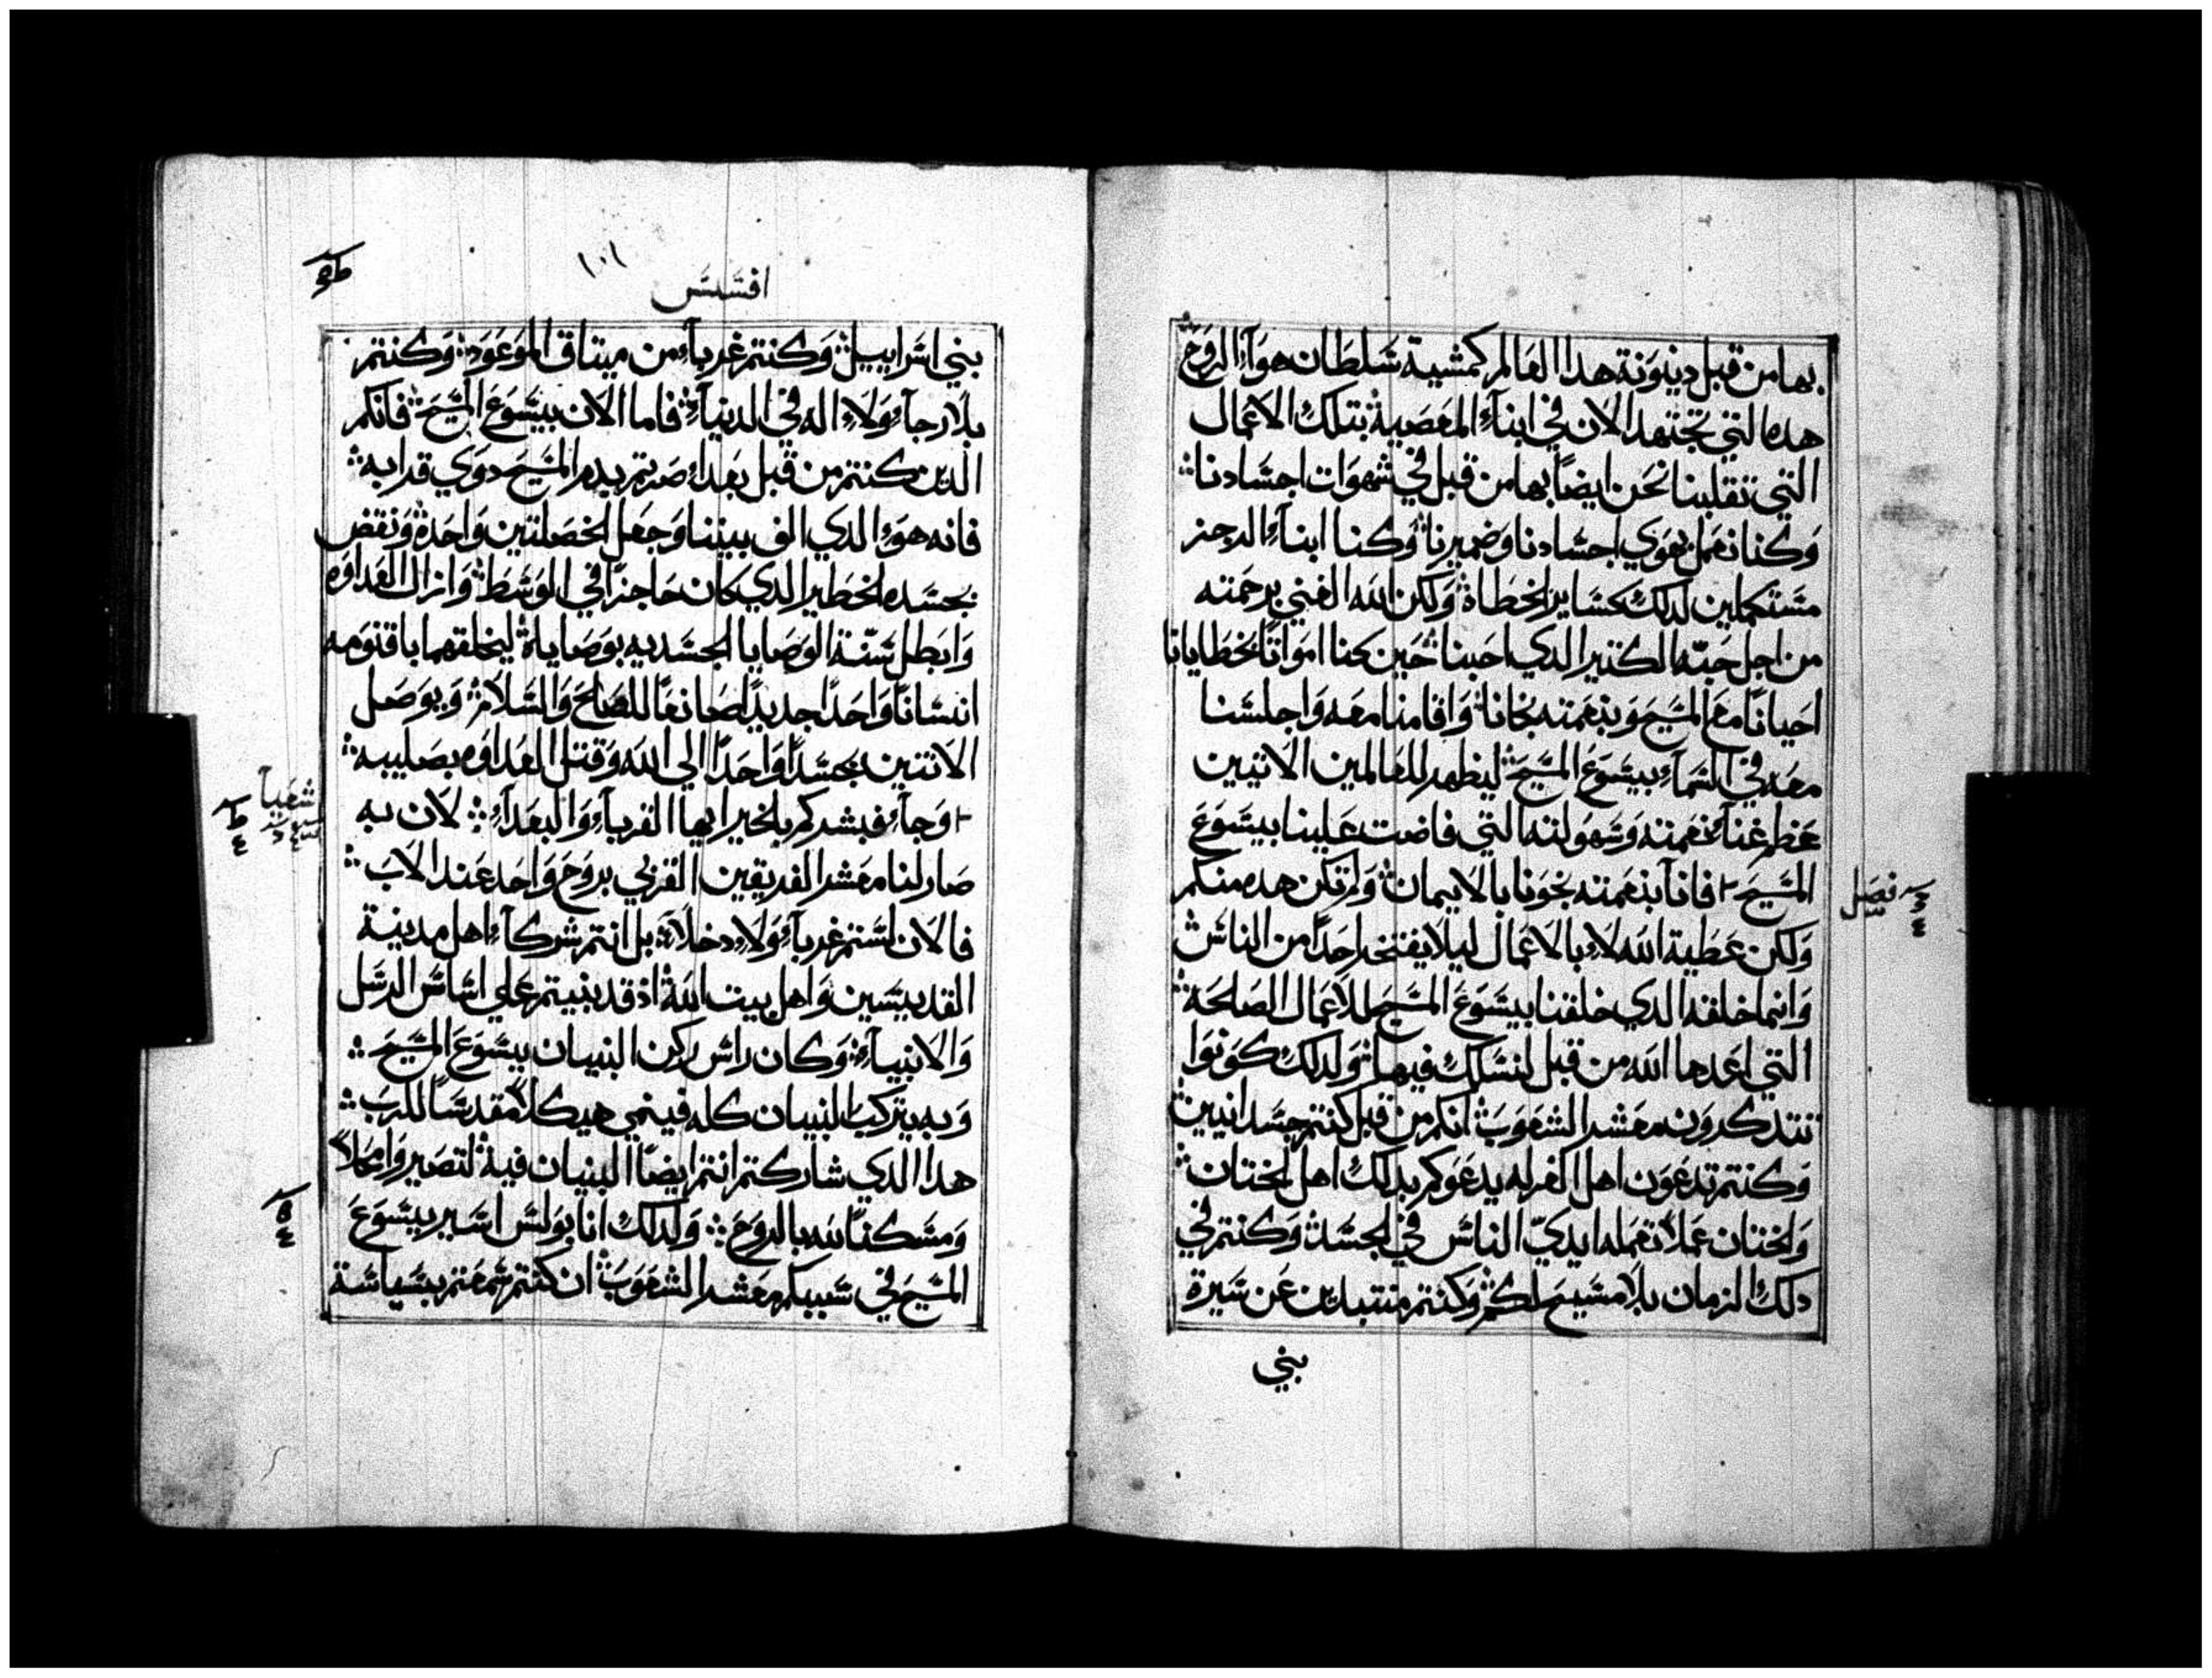 بها من قبل دينونة هدا العالم كمشية سلطان هواء الروح
هده التي تجتهد الان في ابناء المعصية بتلك الاعمال
التي تقلبنا نحن ايضاً بها من قبل في شهوات اجسادنا
وكنا نعمل بهوي اجسادنا وضميرنا وكنا ابناء الرجز
مستكملين لدلك كساير الخطاة ولكن الله الغني برحمته
من اجل حبّه الكتير الدي احبنا حين كنا امواتاً بخطايانا
احيانا مع المسيح وبنعمته نجانا واقامنا معه واجلسنا
معه في السماء بيسوع المسيح ليظهر للعالمين الاتيين
عظم غناء نعمته وسهولته التي فاضت علينا بيسوع
المسيح فانا بنعمته نجونا بالايمان ولم تكن هده منكم
فصل
ولكن عطية الله لا بالاعمال ليلا يفتخر احداً من الناس
وانما خلقه الدي خلقنا بيسوع المسيح للاعمال الصالحة
التي اعدها الله من قبل لنسلك فيها ولدلك كونوا
تتدكرون معشر الشعوب انكم من قبل كنتم جسدانيين
وكنتم تدعون اهل الغرله يدعوكم بدلك اهل الختان
والختان عملاً تعمله ايديّ الناس في الجسد وكنتم في
دلك الزمان بلا مسيح لكم وكنتم منتبدين عن سيرة
بني
١٠١
افسس
بني اسراييل وكنتم غرباء من ميتاق الموعود وكنتم
بلا رجاء ولا اله في الدنيا فاما الان بيسوع المسيح فانكم
الدين كنتم من قبل بعداء صرتم بدم المسيح دوي قرابه
فانه هو الدي الف بيننا وجعل الخصلتين واحدة ونقض
بجسده الحظير الدي كان حاجزاً في الوسط وازال العداوه
وابطل سنّة الوصايا الجسديه بوصاياة ليخلقهما باقنومه
انساناً واحداً جديداً صانعاً للصلح والسلام ويوصل
الاتنين بجسداً واحداً الي الله وقتل العداوه بصليبه
وجاء فبشركم بالخير ايها القرباء والبعداء لان به
شعيا
صار لنا معشر الفريقين القربي بروح واحد عند الاب
فالان لستم غرباء ولا دخلاء بل انتم شركاء اهل مدينة
القديسين واهل بيت الله اذ قد بنيتم علي اساس الرسل
والانبياء وكان راس ركن البنيان بيسوع المسيح
وبه يتركب البنيان كله فينمي هيكلاً مقدساً للرب
هدا الدي شاركتم انتم ايضاً البنيان فيه لتصيروا محلاً
ومسكناً لله بالروح ولدلك انا بولس اسير يسوع
المسيح في سببكم معشر الشعوب ان كنتم سمعتم بسياسة